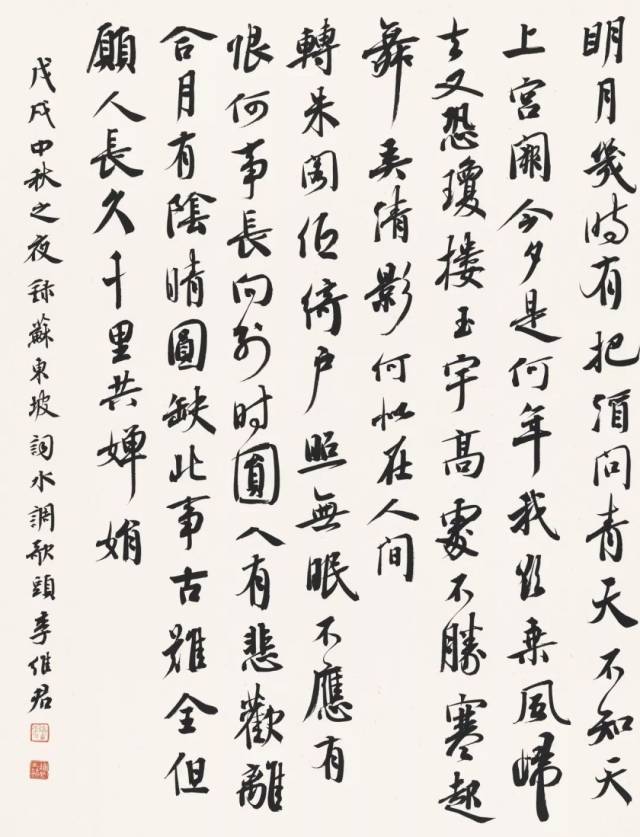 明月幾時有把酒問青天不知天
上宮闕今夕是何年我欲乘風歸
去又恐瓊樓玉宇高處不勝寒起
舞弄清影何似在人间
轉朱閣低綺户照無眠不應有
恨何事長向別時圓人有悲歡離
合月有陰晴圓缺此事古難全但
願人長久千里共嬋娟
戊戌中秋之夜蘇東坡詞水調歌頭李維君